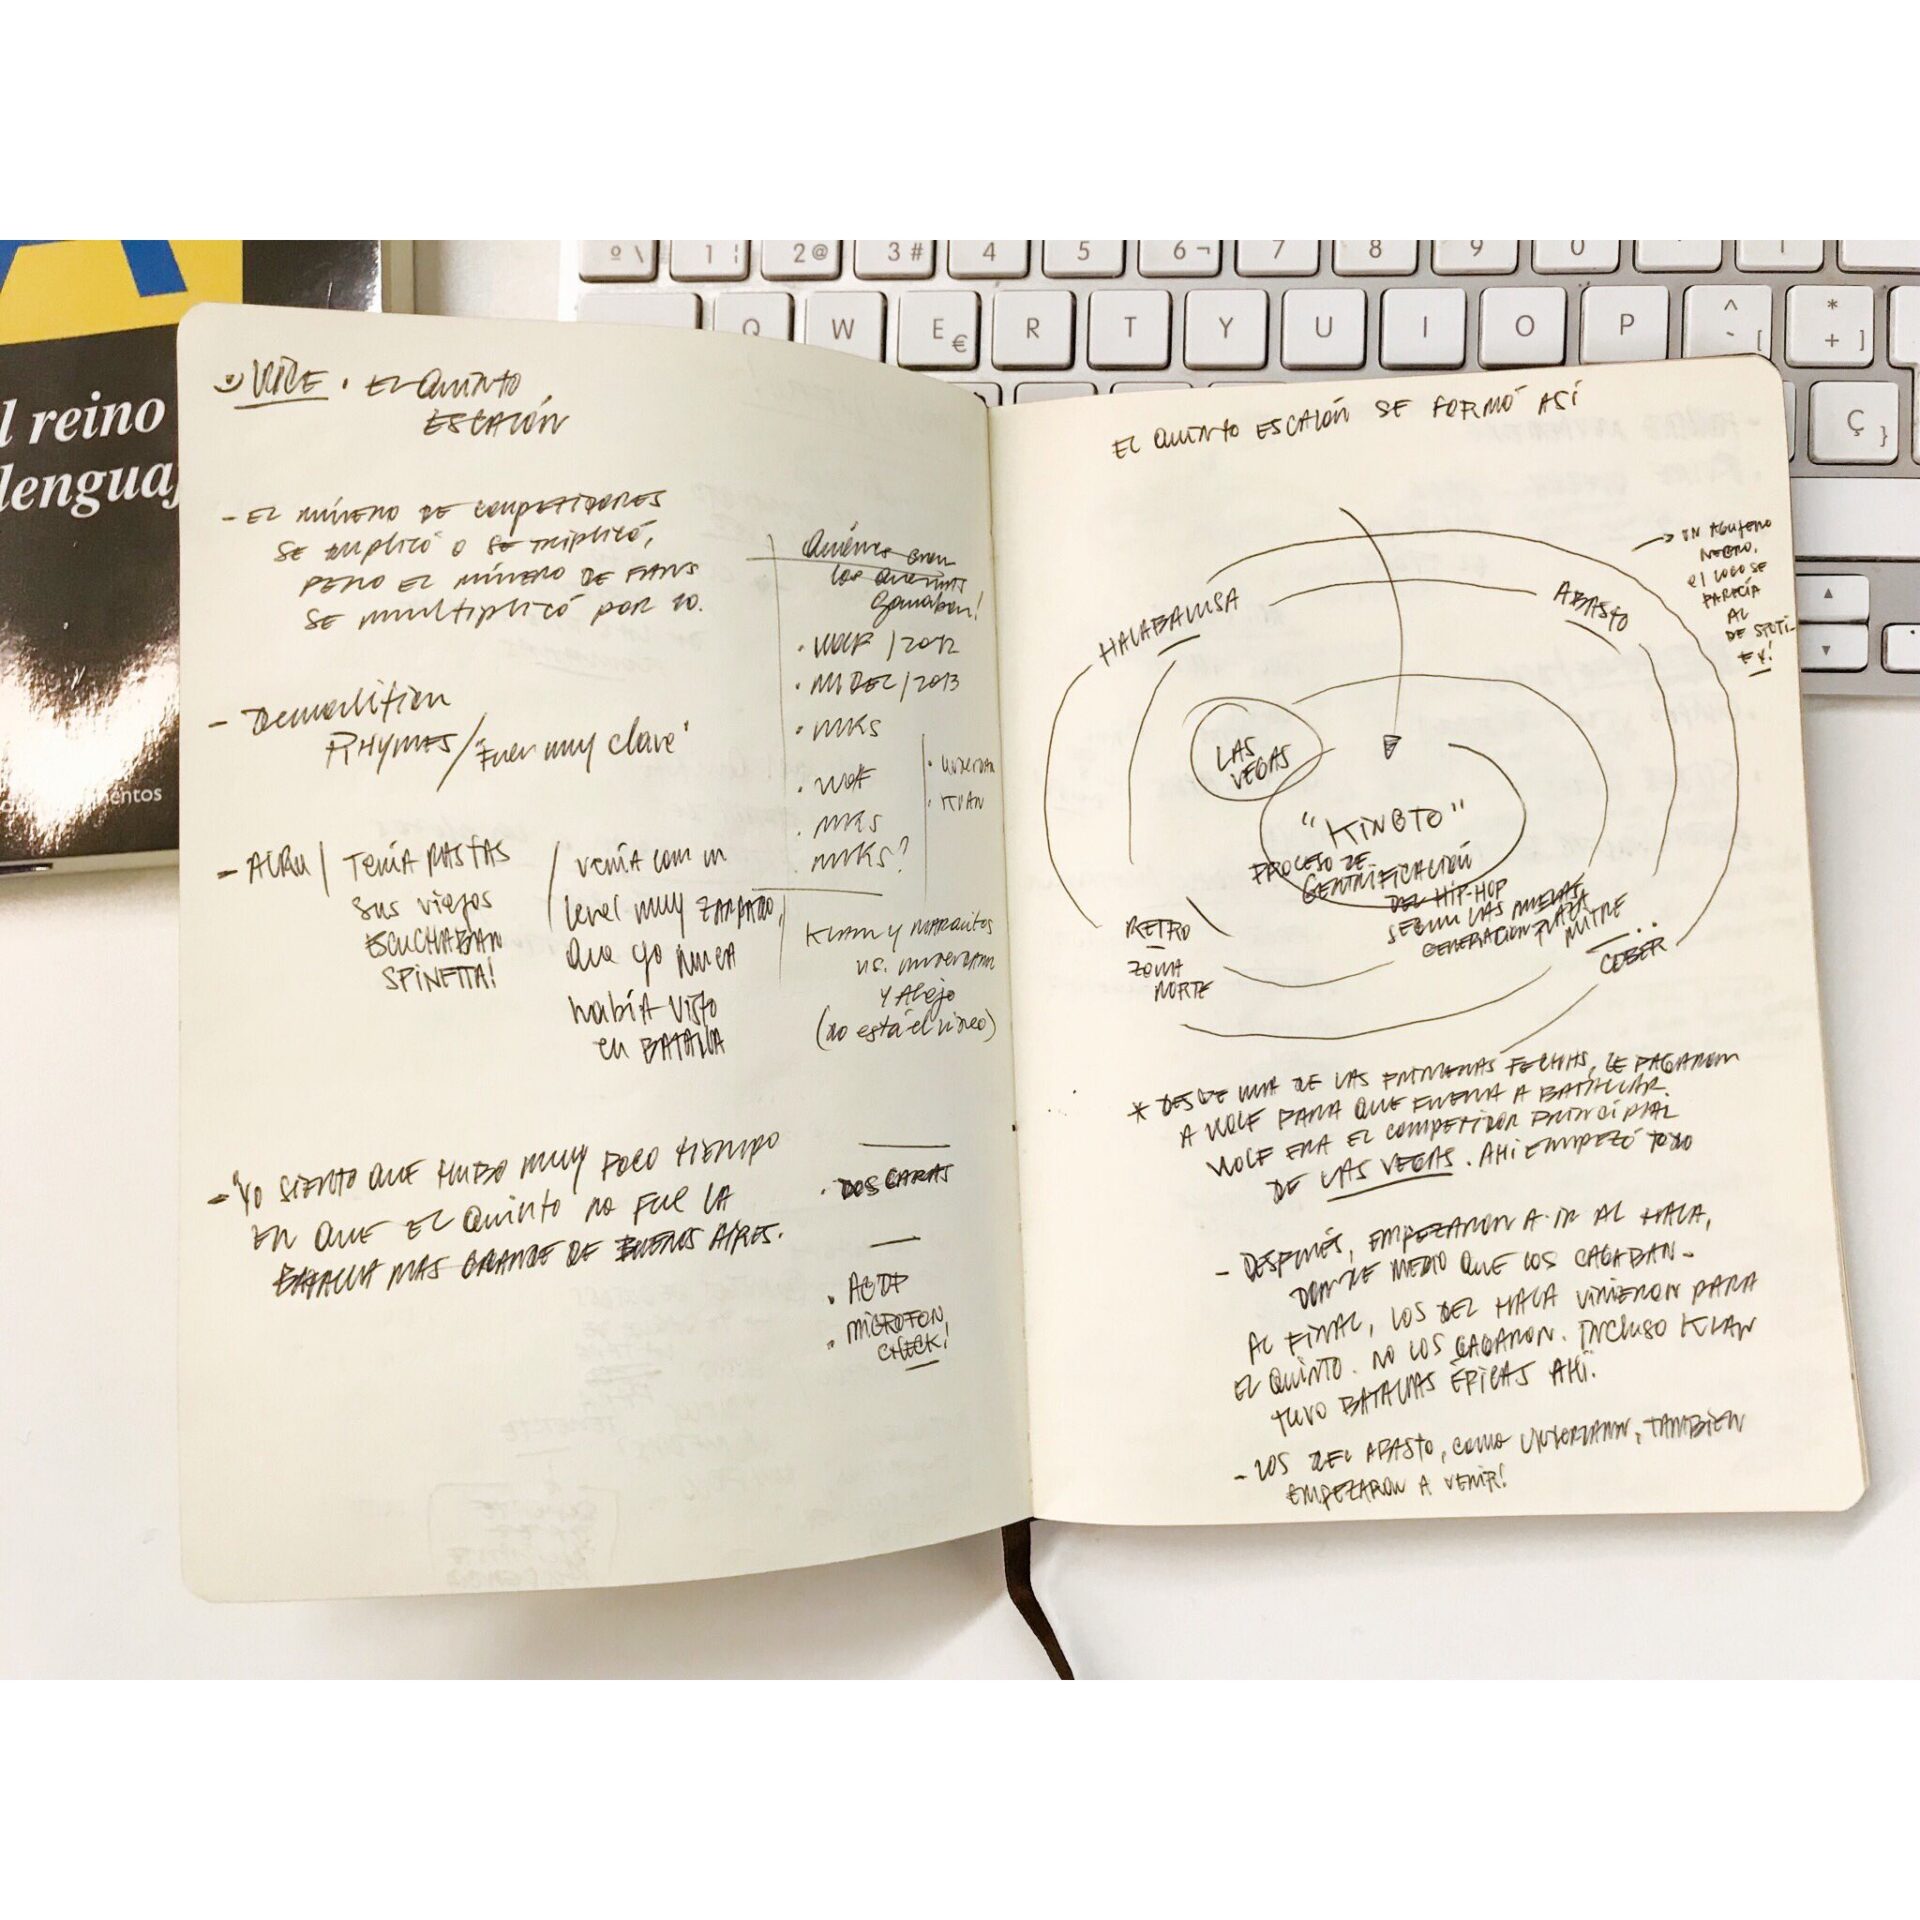 l reino
lenguaj
entos
º \ 1 2 @ 3 # 4 5 6 ¬ 7 8 9 0
Q W E € R T Y U I O P ^ ~ [ * + ]
Ç }
VICE . EL QUINTO
ESCALÓN
- EL NÚMERO DE COMPETIDORES
SE DUPLICÓ O SE TRIPLICÓ,
PERO EL NÚMERO DE FANS
SE MULTIPLICÓ POR 10.
- Demolition
RHYMES / "Fuer muy clave"
- ACRU / TENÍA RASTAS
SUS viejos
ESCUCHABAN
SPINETTA!
/ venía con un
level muy ZARPADO,
QUE yo nunca
había visto
en BATALLA
- Yo SIENTO QUE HUBO MUY POCO TIEMPO
EN QUE EL QUINTO NO FUE LA
BATALLA MAS GRANDE DE BUENOS AIRES.
Quiénes eran
los que más
Ganaban!
. WOLF / 2012
. MIDEL / 2013
. MKS
. WOLF
. MKS
. MKS?
. UNDERDAN
. KLAN
KLAN y MARQUITOS
vs. UNDERDANN
Y Alejo
(no está el video)
. DOS CARAS
. ACTP
. MICROFON
CHECK!
EL QUINTO ESCALÓN SE FORMÓ ASÍ
HALABALUSA
ABASTO
→ UN AGUJERO
NEGRO.
el LOGO SE
PARECÍA
AL
DE SPOTI-
FY!
LAS
VEGAS
"KINGTO"
PROCESO DE
GENTRIFICACIÓN
DEL HIP-HOP
SEGÚN LAS NUEVAS
GENERACION
PLAZA
MITRE
...
CEBER
RETRO
ZONA
NORTE
* DESDE UNA DE LAS PRIMERAS FECHAS, LE PAGARON
A WOLF PARA QUE FUERA A BATALLAR.
WOLF ERA EL COMPETIDOR PRINCIPAL
DE LAS VEGAS. AHI EMPEZÓ TODO
- DESPUÉS, EMPEZARON A IR AL HALA,
DONDE MEDIO QUE LOS CAGABAN -
AL FINAL, LOS DEL HALA VINIERON PARA
EL QUINTO. NO LOS CAGARON. INCLUSO KLAN
TUVO BATALLAS ÉPICAS AHÍ.
- LOS DEL ABASTO, COMO UNDERDANN, TAMBIEN
EMPEZARON A VENIR!